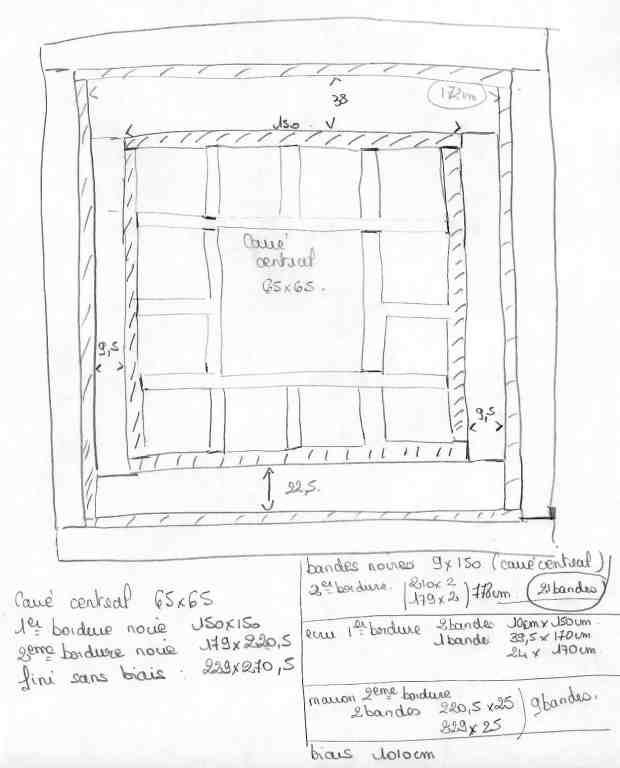 172cm
38
150
Carré
central
65x65.
9,5
9,5
22,5.
Carré central 65x65
1ère bordure noire 150x150
2ème bordure noire 179x220,5
fini sans biais : 229x270,5
bandes noires 9x150 (carré central)
2ère bordure. 210x2
179x2) 778cm
21 bandes
ecru 1ère bordure 2 bandes 10cmx150cm
1 bande 39,5x170cm
24x 170cm.
marron 2ème bordure
2 bandes 220,5x25) 9 bandes.
229x25
biais 1010cm